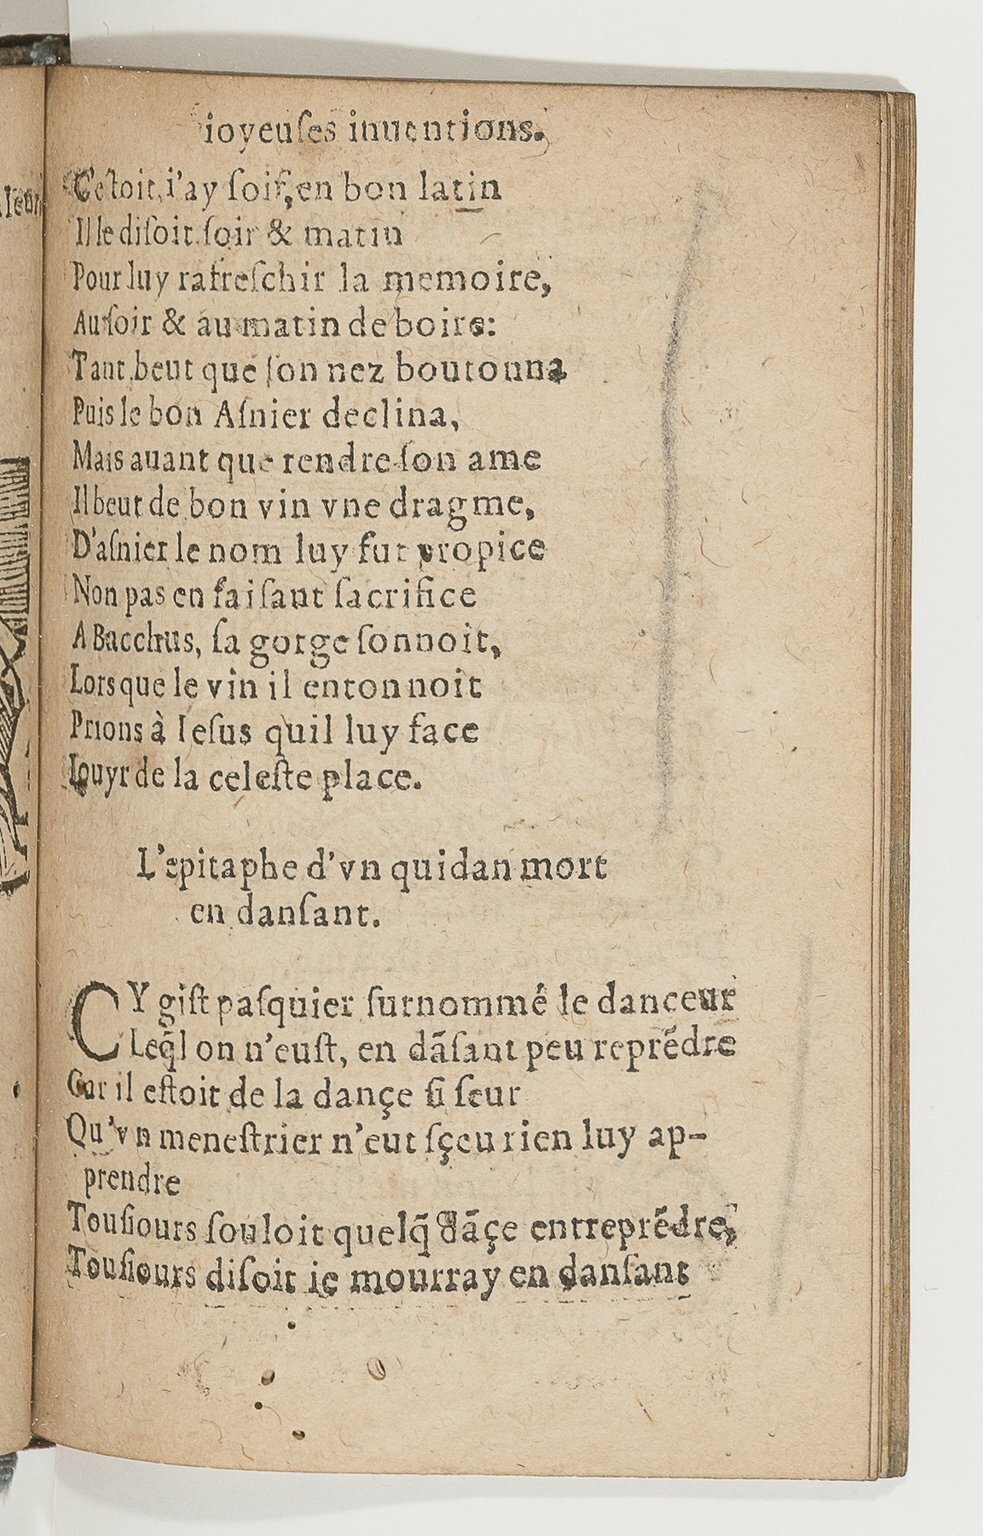 ioyeuſes inuentions.
C'eſtoit, i'ay ſoif, en bon latin
Il le diſoit ſoir & matin
Pour luy rafreſchir la memoire,
Au ſoir & au matin de boire:
Tant beut que ſon nez boutonna
Puis le bon Aſnier declina,
Mais auant que rendre ſon ame
Il beut de bon vin vne dragme,
D'aſnier le nom luy fut propice
Non pas en faiſant ſacrifice
A Bacchus, ſa gorge ſonnoit,
Lors que le vin il entonnoit
Prions à Ieſus quil luy face
Iouyr de la celeſte place.
L'epitaphe d'vn quidan mort
en danſant.
CY giſt paſquier ſurnommé le danceur
Leq̃l on n'euſt, en dãſant peu reprẽdre
Car il eſtoit de la dançe ſi ſeur
Qu'vn meneſtrier n'eut ſçeu rien luy ap-
prendre
Touſiours ſouloit quelq̃ dãçe entreprẽdre,
Touſiours diſoit ie mourray en danſant